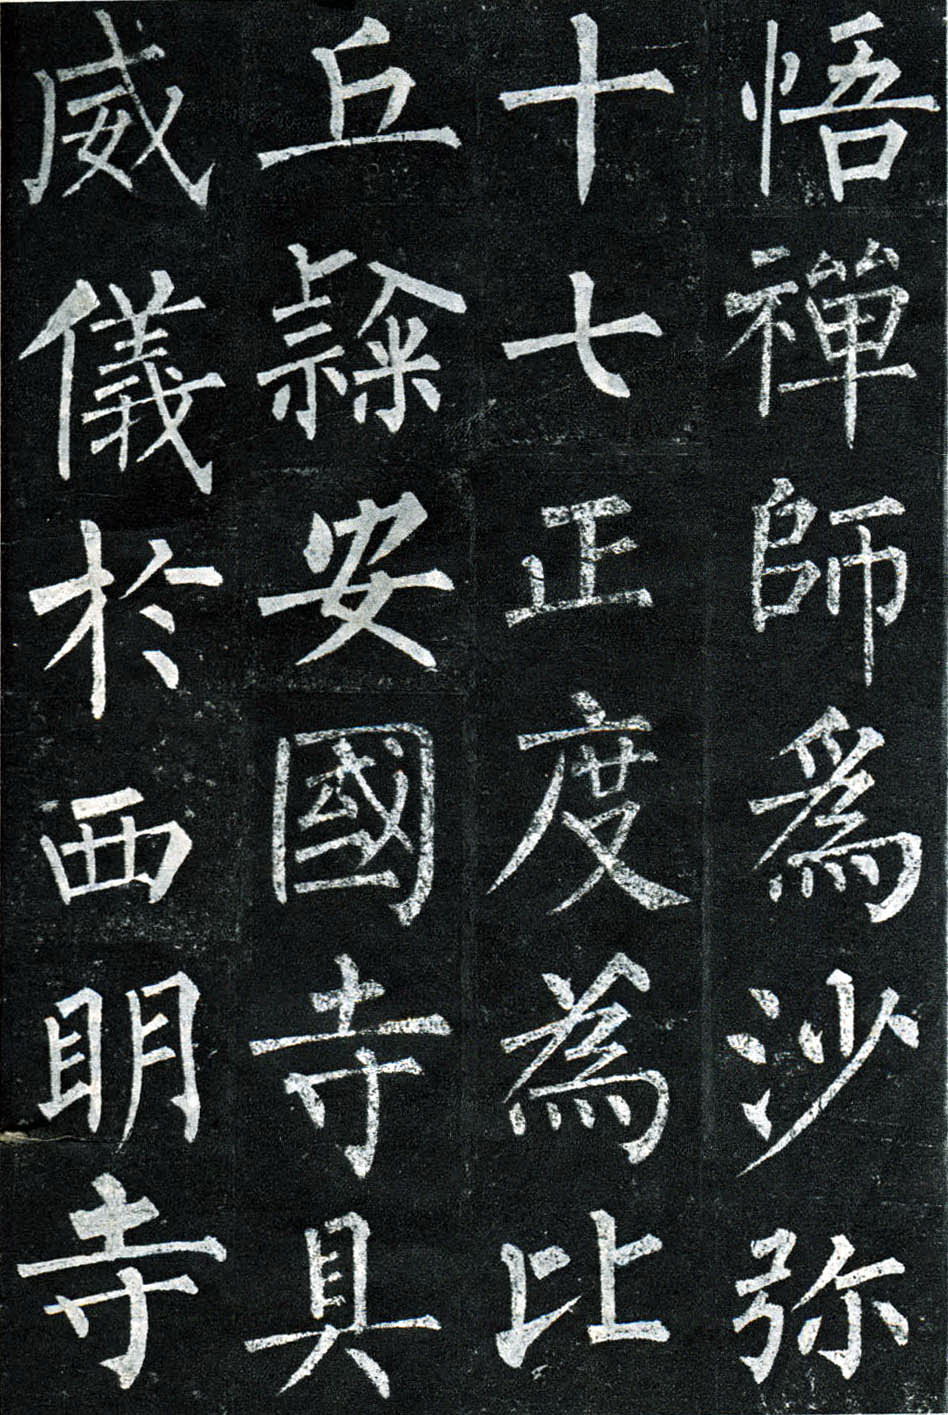 悟禪師爲沙弥
十七正度爲比
丘隸安國寺具
威儀於西明寺